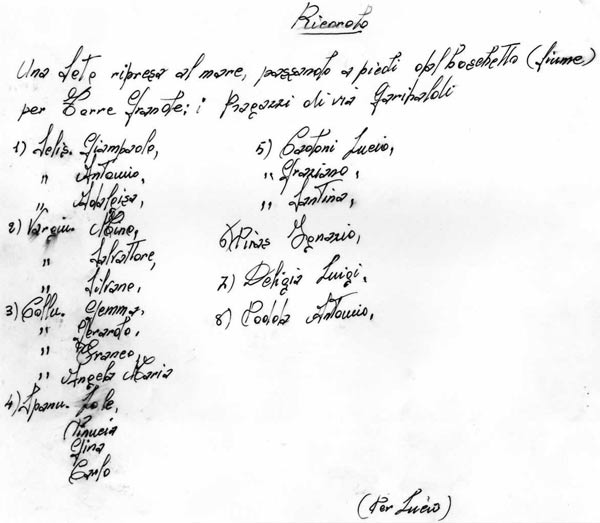 Ricordo
Una foto ripresa al mare, passando a piedi dal boschetto (fiume)
per Torre Grande; i Ragazzi di via Garibaldi
1) Lelis. Giampaolo,
" Antonio,
" Adalgisa,
2) Vargiu. Nino,
" Salvattore,
" Silvane,
3) Collu. Gemma,
" Gerardo,
" Franco,
" Angela Maria
4) Spanu. Iole,
Pinucia
Gina
Carlo
5) Caddoni Lucio,
" Graziano,
" Santina,
6) Piras Ignazio,
7) Deligia Luigi,
8) Podda Antonio,
(Per Lucio)